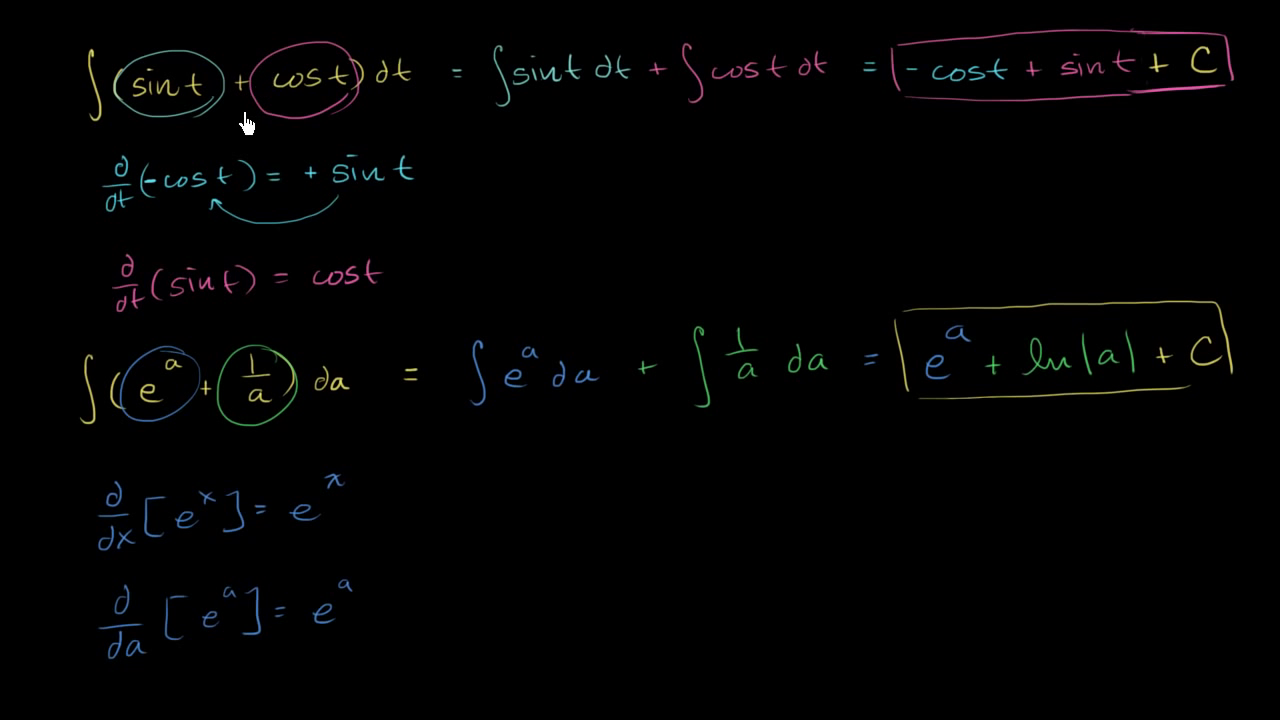 ∫(sin t + cos t) dt = ∫sin t dt + ∫cos t dt = -cos t + sin t + C
d/dt(-cos t) = + sin t
d/dt(sin t) = cos t
∫(e^a + 1/a) da = ∫e^a da + ∫1/a da = e^a + ln|a| + C
d/dx[e^x] = e^x
d/da[e^a] = e^a